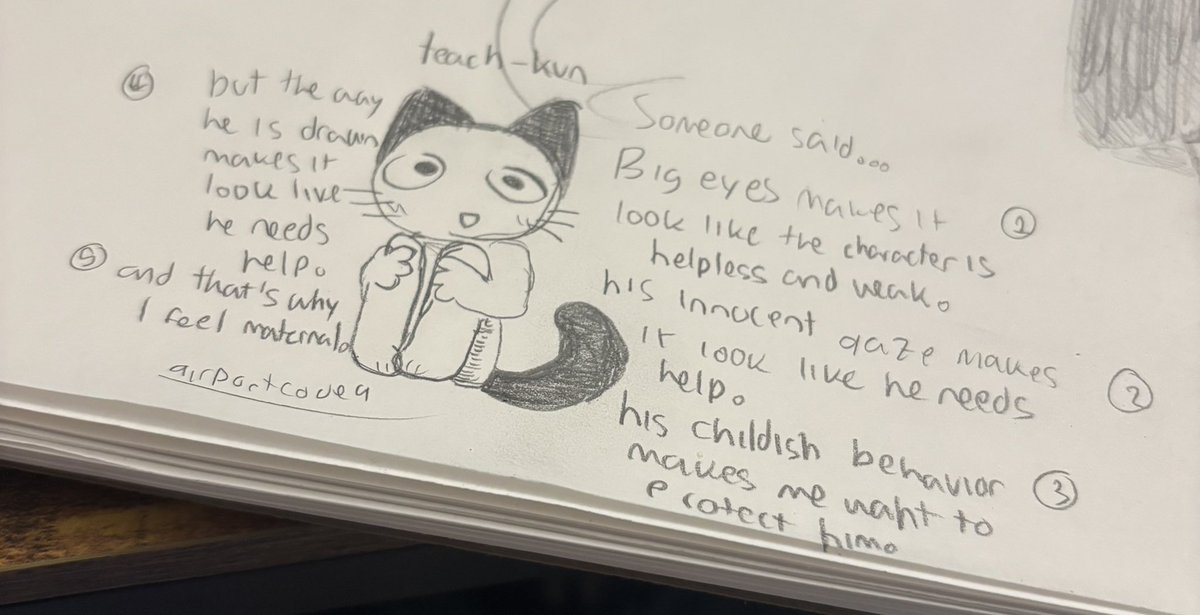 teach-kun
Someone said...
① Big eyes makes it
look like the character is
helpless and weak.
② his innocent gaze makes
it look like he needs
help.
③ his childish behavior
makes me waht to
protect him.
④ but the way
he is drawn
makes it
look like
he needs
help.
⑤ and that's why
I feel maternal.